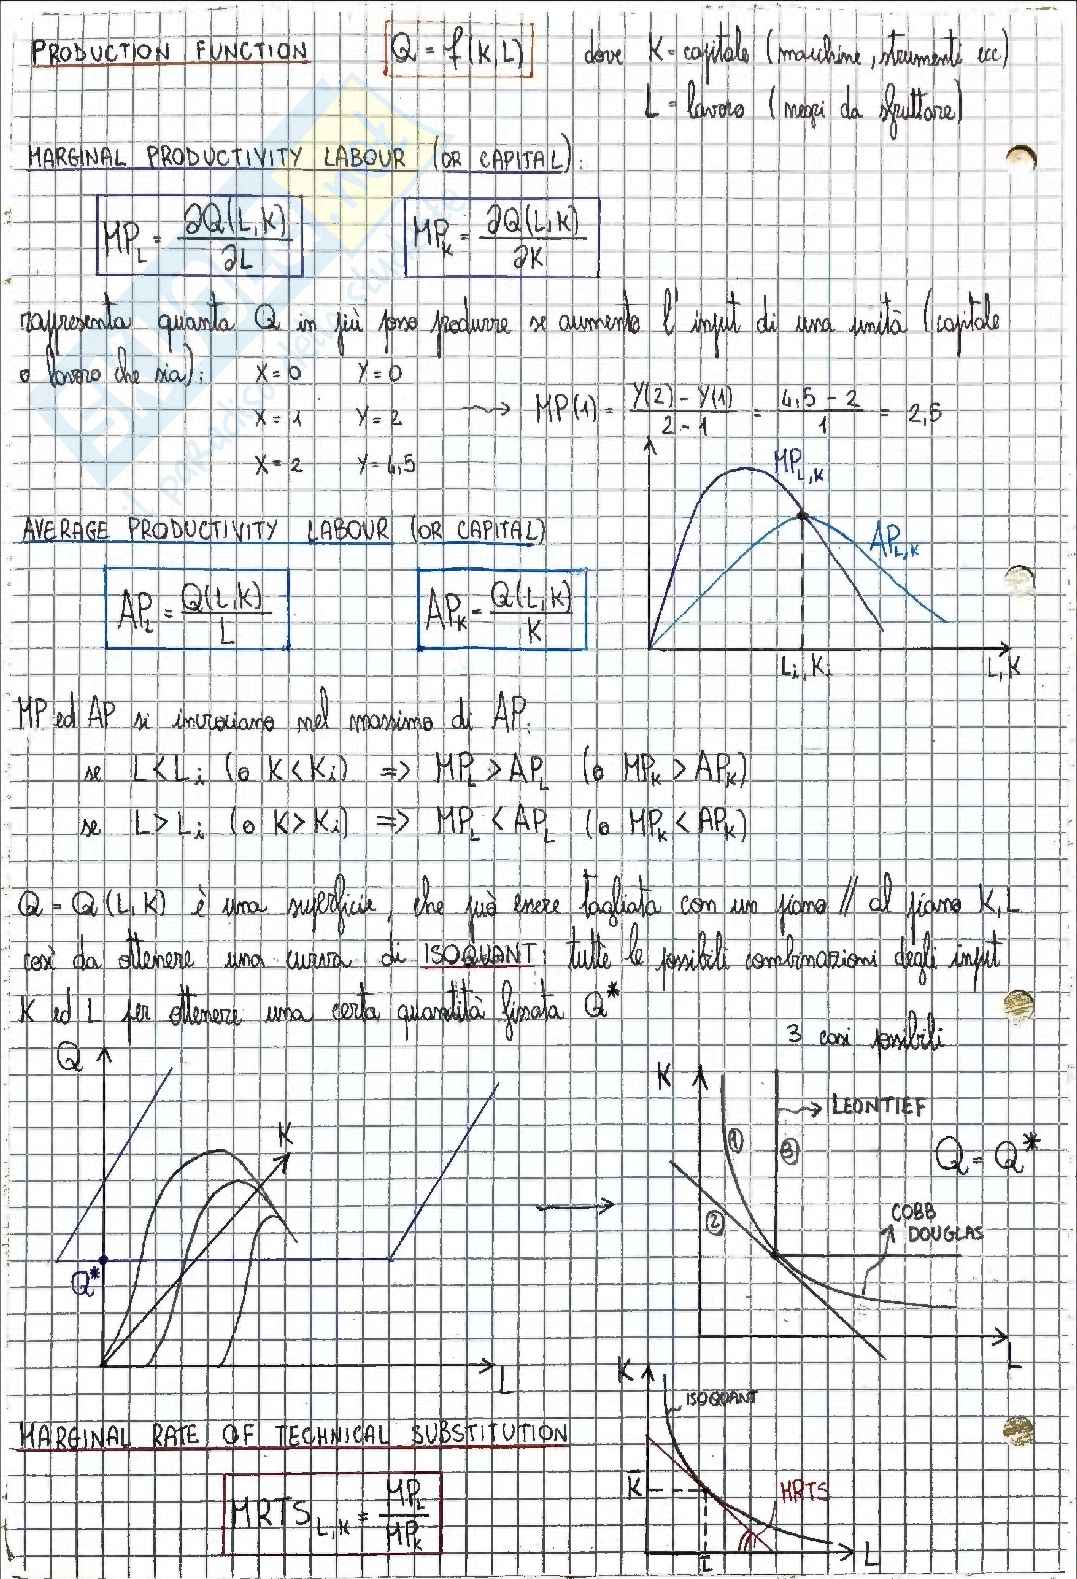 PRODUCTION FUNCTION Q = f(K,L) dove K = capitale (macchine, strumenti ecc)
L = lavoro (negri da sfruttare)
MARGINAL PRODUCTIVITY LABOUR (OR CAPITAL):
MP_L = ∂Q(L,K)/∂L MP_K = ∂Q(L,K)/∂K
rappresenta quanta Q in più posso produrre se aumento l'input di una unità (capitale
o lavoro che sia): X=0 Y=0
X=1 Y=2 ⇝ MP(1) = Y(2) - Y(1) / 2-1 = 4,5 - 2 / 1 = 2,5
X=2 Y=4,5
MP_L,K
AVERAGE PRODUCTIVITY LABOUR (OR CAPITAL)
AP_L,K
AP_L = Q(L,K)/L AP_K = Q(L,K)/K
Li, Ki L,K
MP ed AP si incrociano nel massimo di AP:
se L < Li (o K < Ki) => MP_L > AP_L (o MP_K > AP_K)
se L > Li (o K > Ki) => MP_L < AP_L (o MP_K < AP_K)
Q = Q(L,K) è una superficie, che può essere tagliata con un piano // al piano K,L
così da ottenere una curva di ISOQUANT: tutte le possibili combinazioni degli input
K ed L per ottenere una certa quantità fissata Q*
3 casi possibili
Q K
LEONTIEF
K ① ③ Q = Q*
② COBB
DOUGLAS
Q*
L L
K
ISOQUANT
MARGINAL RATE OF TECHNICAL SUBSTITUTION
K̄ MRTS
MRTS_L,K = MP_L/MP_K
L̄ L